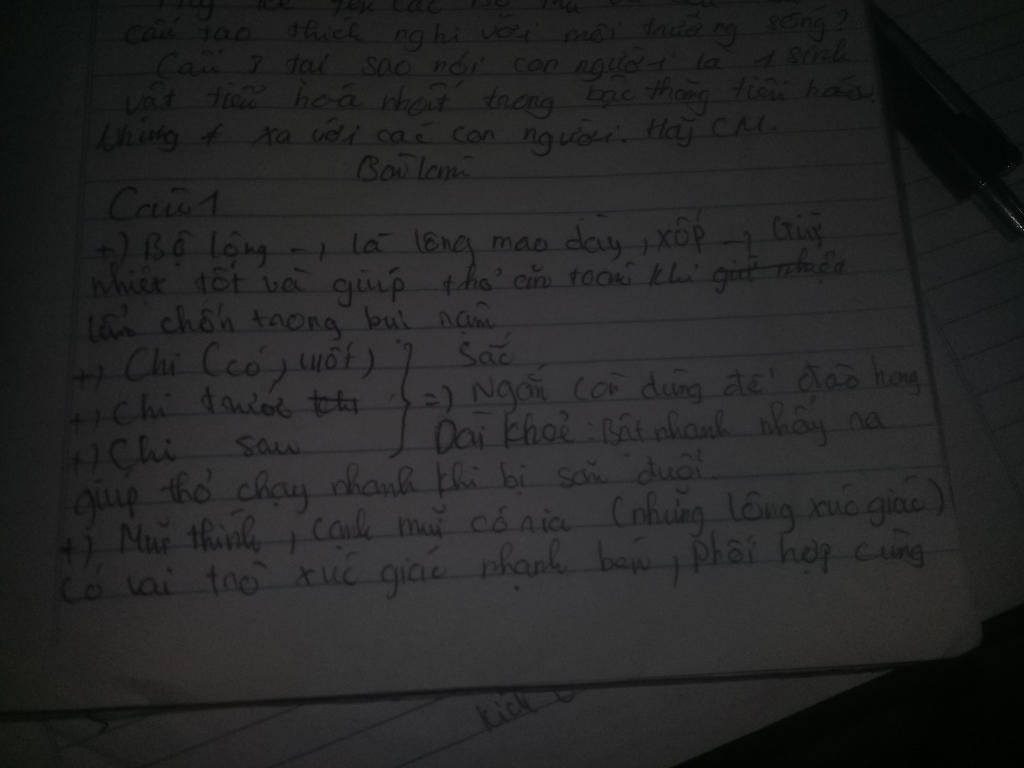 cấu tạo thích nghi với môi trường sống?
Câu 3 tại sao nói con người là 1 sinh
vật tiến hoá nhất trong bậc thang tiến hoá.
xa với các con người. Hãy CM.
Bài làm
Câu 1
+) Bộ lông →, là lông mao dày, xốp → Giữ
nhiệt tốt và giúp thỏ an toàn khi giữ nhiệt
lẩn chốn trong bụi rậm
+) Chi (có, vuốt) } Sắc
+) Chi trước } => Ngắn còn dùng để đào hang
+) Chi sau } Dài khoẻ: Bật nhanh nhảy xa
giúp thỏ chạy nhanh khi bị săn đuổi.
+) Mũi thính, cạnh mũi có ria (những lông xúc giác)
có vai trò xúc giác nhanh bén, phối hợp cùng
kich